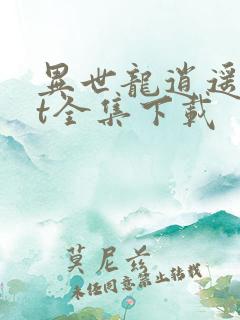 異世龍逍遥
t全集下載
莫尼兹
未任同意禁止转载